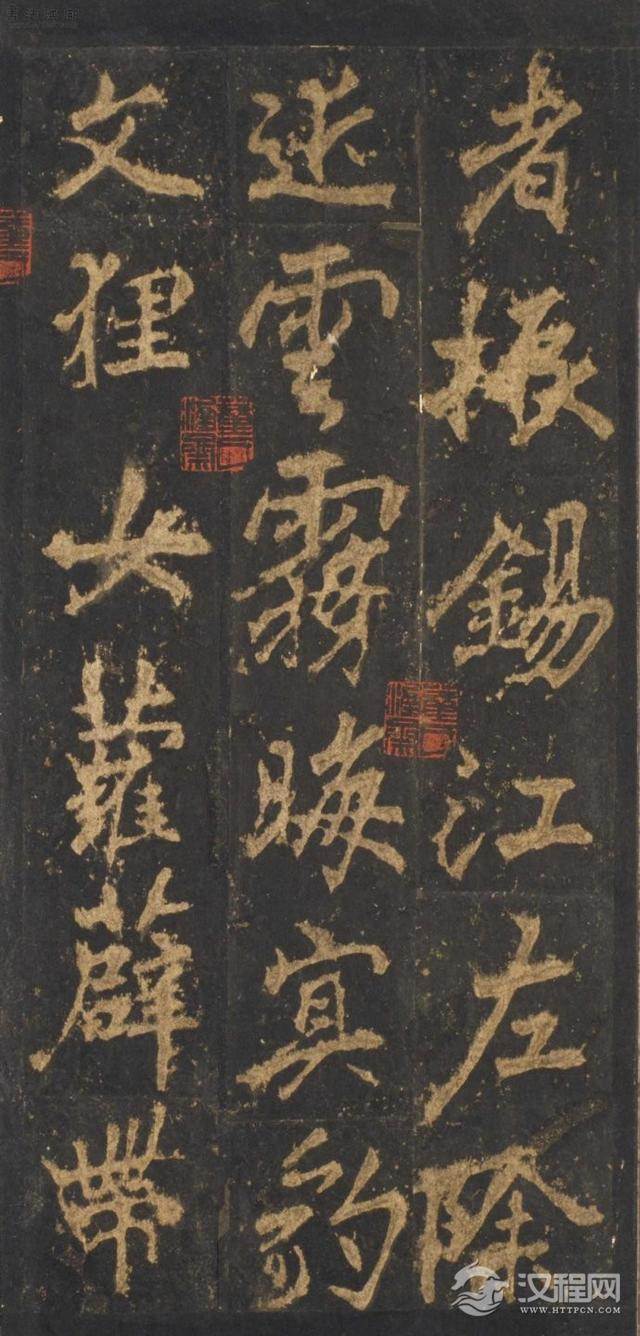 者振錫江左除
迷雲霧晦冥豹
文狸女蘿薜帶
汉程网
WWW.HTTPCN.COM